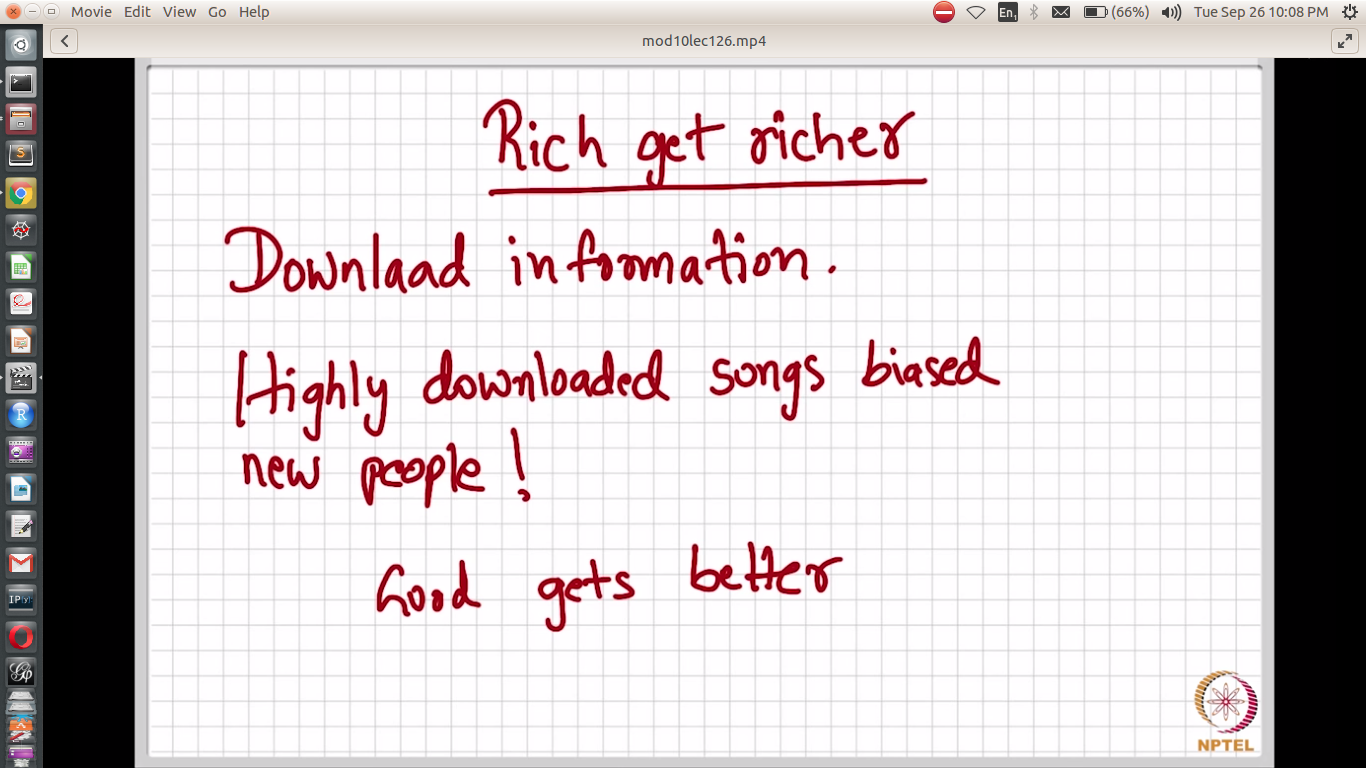 Movie Edit View Go Help En1 (66%) Tue Sep 26 10:08 PM
mod10lec126.mp4
Rich get richer
Downlaad information.
Highly downloaded songs biased
new people!
Good gets better
S
R
IP[y]:
NPTEL